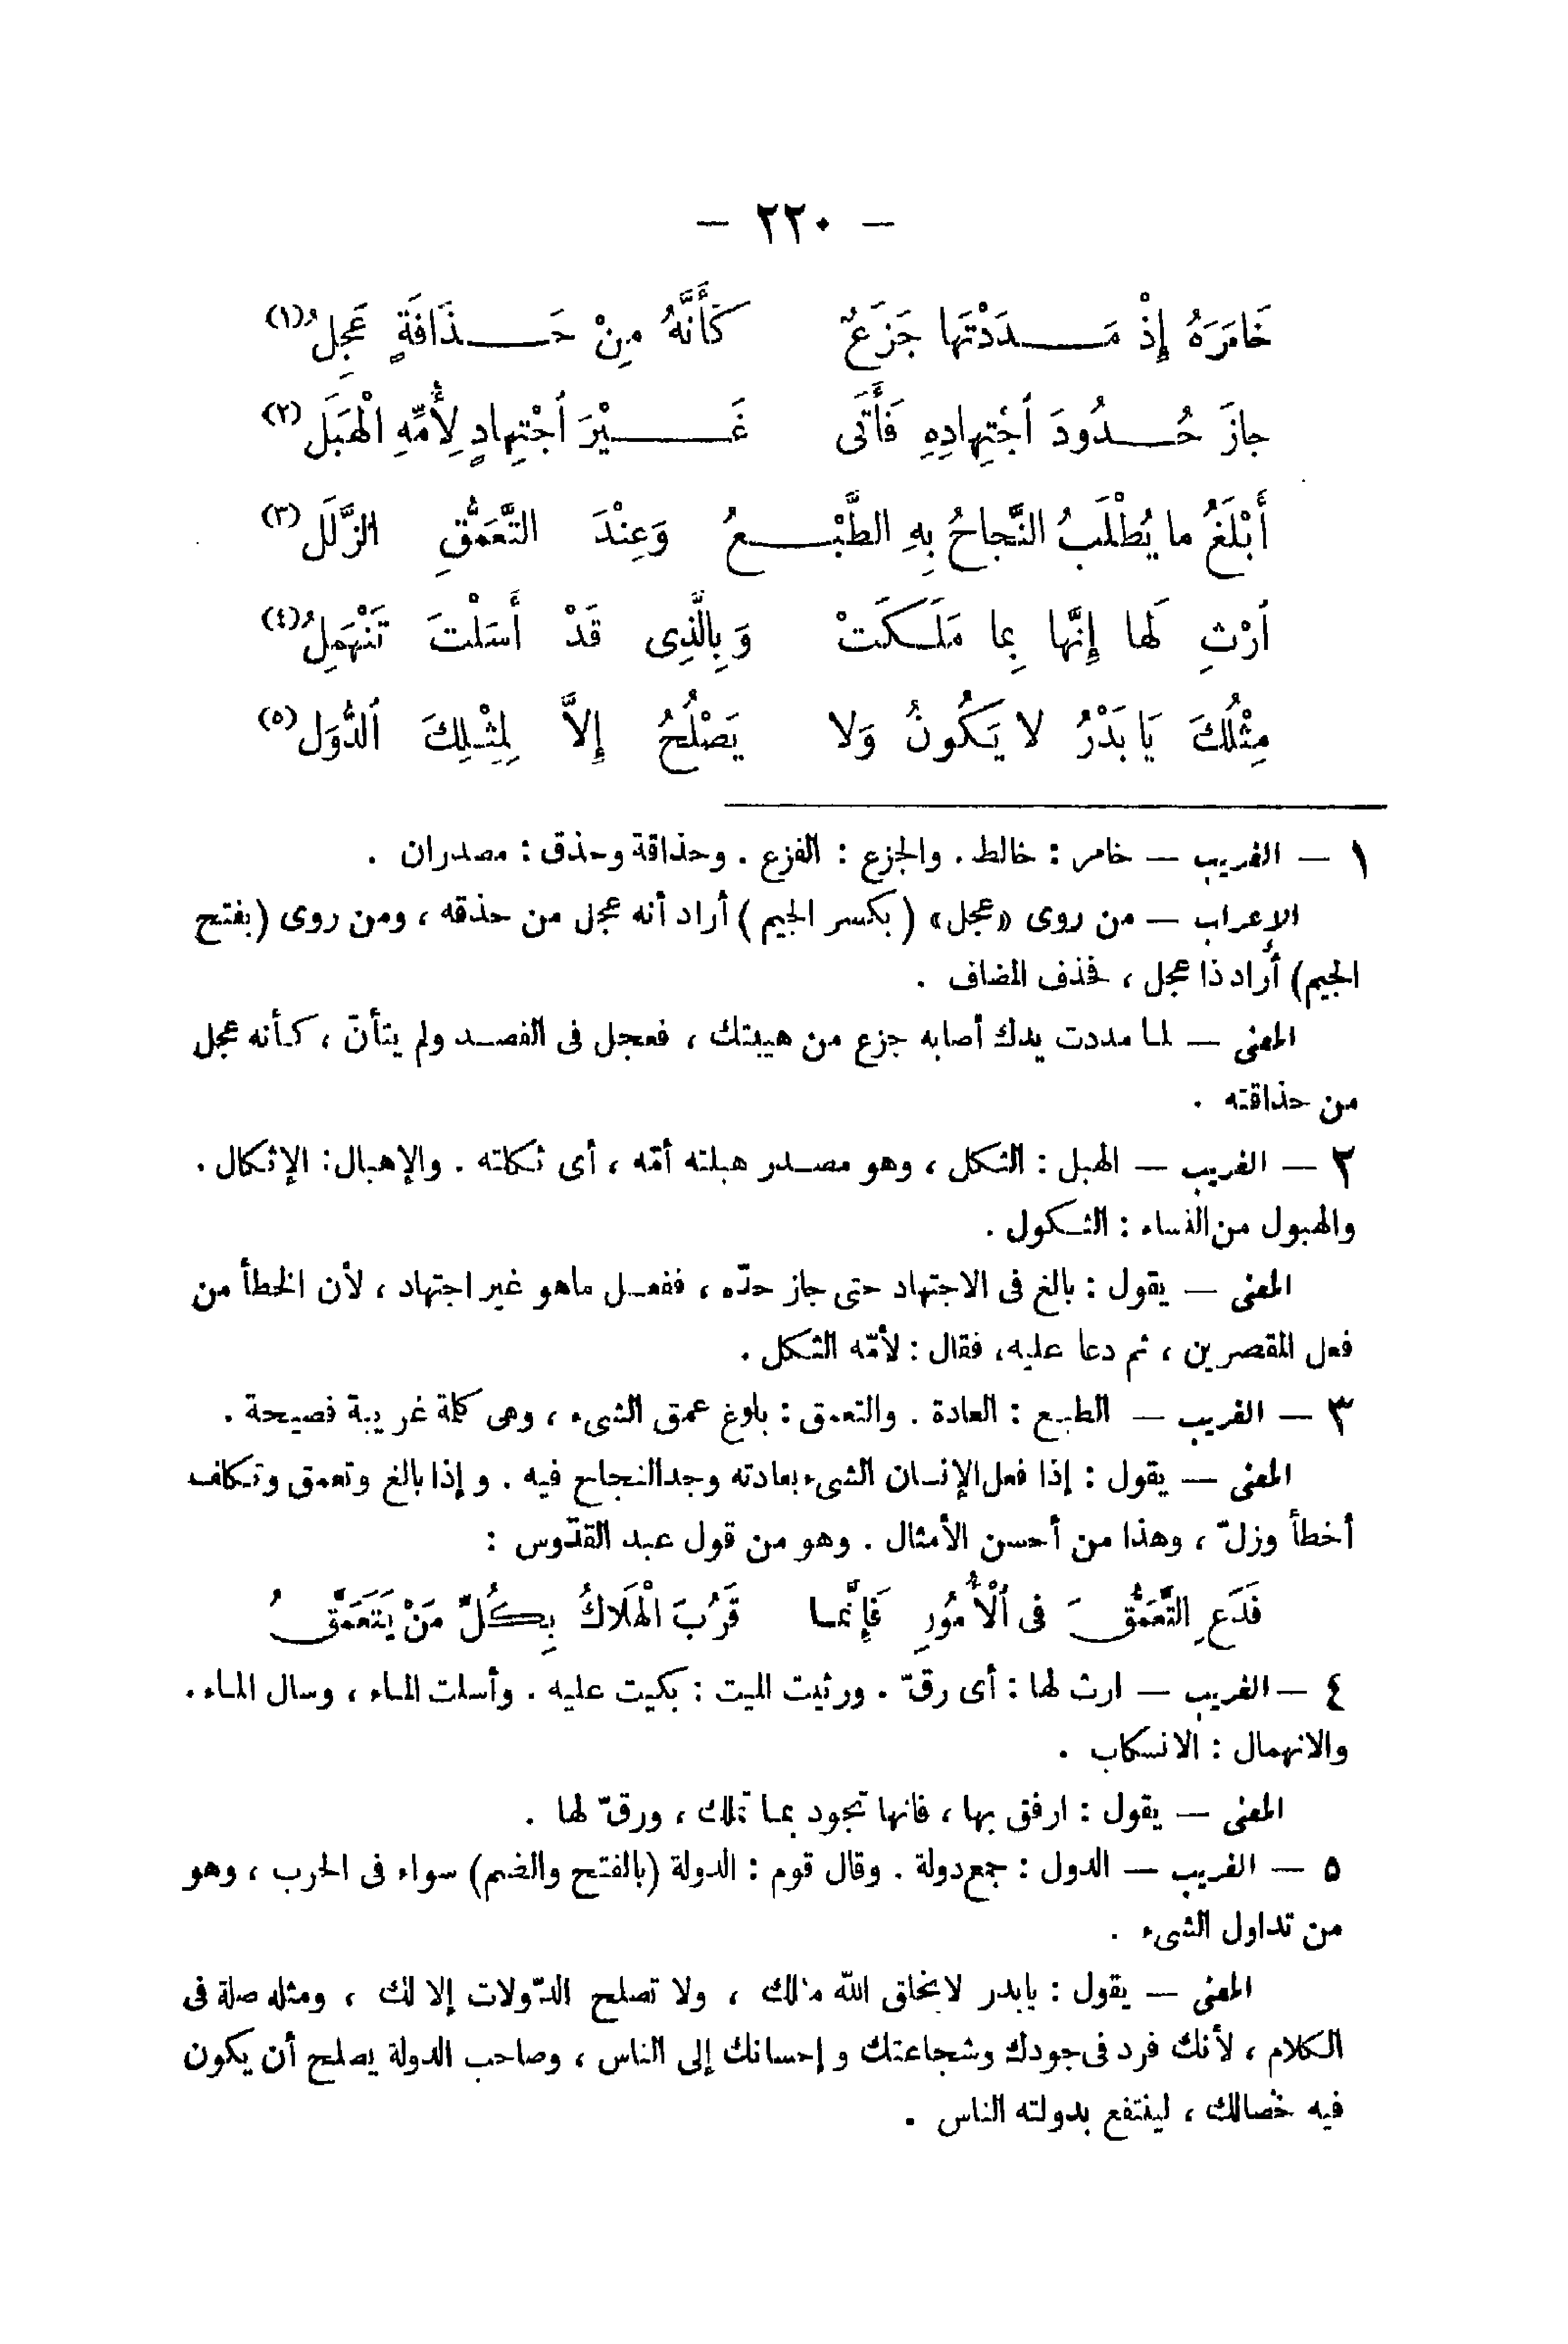 — ٢٢٠ —
خَامَرَهُ إِذْ مَـــدَدْتَهَا جَزَعٌ كَأَنَّهُ مِنْ حَـــذَافَةٍ عَجِلُ (١)
جازَ حُـــدُودَ اُجْتِهادِهِ فَأَتَى غَـــيْرَ اُجْتِهادٍ لِأُمِّهِ الْهَبَلُ (٢)
أَبْلَغُ ما يُطْلَبُ النَّجاحُ بِهِ الطَّبْـــعُ وَعِنْدَ التَّعَمُّقِ الزَّلَلُ (٣)
اُرْثِ لَها إِنَّها بِما مَلَـكَتْ وَبِالَّذِى قَدْ أَسَلْتَ تَنْهَمِلُ (٤)
مِثْلُكَ يَا بَدْرُ لا يَكُونُ وَلا يَصْلُحُ إِلاَّ لِمِثْلِكَ اُلدُّوَلُ (٥)
١ — الغريب — خامر : خالط . والجزع : الفزع . وحذاقة وحذق : مصدران .
الإعراب — من روى «عجل» (بكسر الجيم) أراد أنه عجل من حذقه ، ومن روى (بفتح
الجيم) أراد ذا عجل ، فحذف المضاف .
المعنى — لما مددت يدك أصابه جزع من هيبتك ، فعجل فى الفصـد ولم يتأنّ ، كأنه عجل
من حذاقته .
٢ — الغريب — الهبل : الثكل ، وهو مصـدر هبلته أمّه ، أى ثكلته . والإهبال : الإثكال .
والهبول من النساء : الثـكول .
المعنى — يقول : بالغ فى الاجتهاد حتى جاز حدّه ، ففعـل ماهو غير اجتهاد ، لأن الخطأ من
فعل المقصرين ، ثم دعا عليه، فقال : لأمّه الثكل .
٣ — الغريب — الطبع : العادة . والتعمق : بلوغ عمق الشىء ، وهى كلمة غريبة فصيحة .
المعنى — يقول : إذا فعل الإنسان الشىء بعادته وجد النجاح فيه . وإذا بالغ وتعمق وتكلف
أخطأ وزلّ ، وهذا من أحسن الأمثال . وهو من قول عبد القدّوس :
فَدَعِ التَّعَمُّقَ فى اُلْأُمُورِ فَإِنَّمـا قَرُبَ الْهَلَاكُ بِـكُلِّ مَنْ يَتَعَمَّقُ
٤ — الغريب — ارث لها : أى رقّ . ورثيت الميت : بكيت عليه . وأسلت الماء ، وسال الماء .
والانهمال : الانسكاب .
المعنى — يقول : ارفق بها ، فانها تجود بما تملك ، ورقّ لها .
٥ — الغريب — الدول : جمع دولة . وقال قوم : الدولة (بالفتح والضم) سواء فى الحرب ، وهو
من تداول الشىء .
المعنى — يقول : يابدر لا يخلق الله مثلك ، ولا تصلح الدّولات إلا لك ، ومثله صلة فى
الكلام ، لأنك فرد فى جودك وشجاعتك وإحسانك إلى الناس ، وصاحب الدولة يصلح أن يكون
فيه خصالك ، لينتفع بدولته الناس .